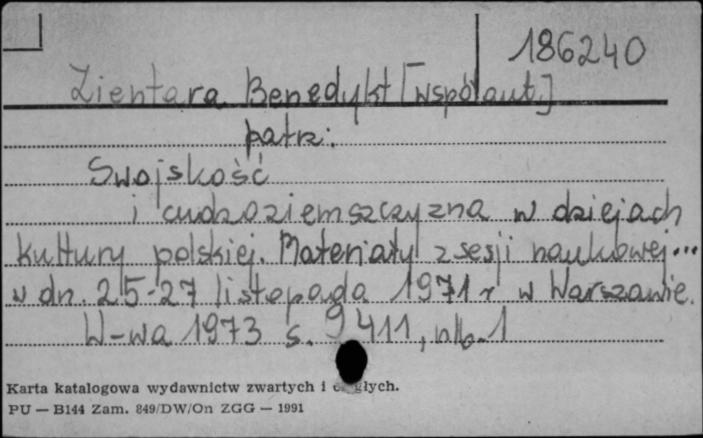 186240
Zientara Benedykt [współaut.]
patrz:
Swojskość
i cudzoziemszczyzna w dziejach
kultury polskiej. Materiały z sesji naukowej...
w dn. 25-27 listopada 1971 r w Warszawie.
W-wa 1973 s. 9 411, nlb. 1
Karta katalogowa wydawnictw zwartych i ciągłych.
PU — B144 Zam. 849/DW/On ZGG — 1991